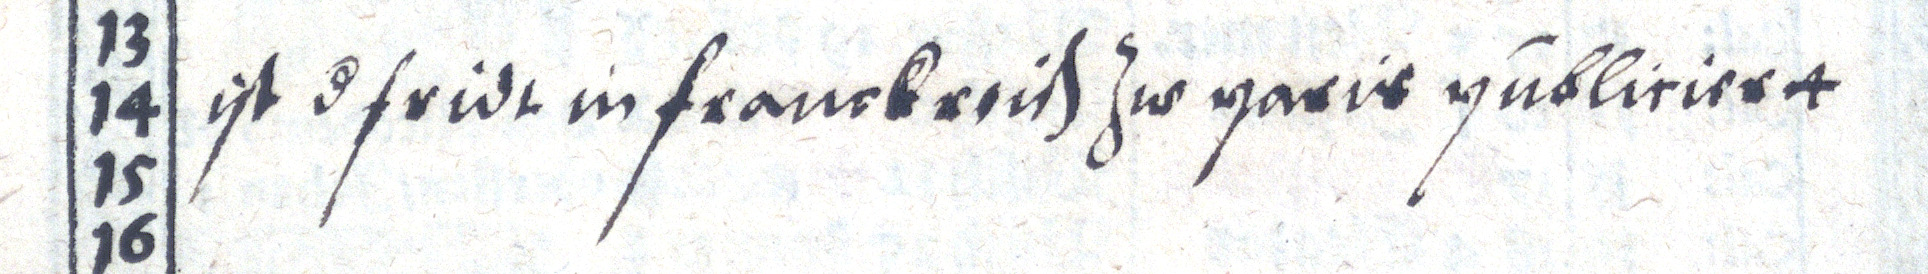 13
14 ist d fridt in franckreich zw paris publiciert
15
16